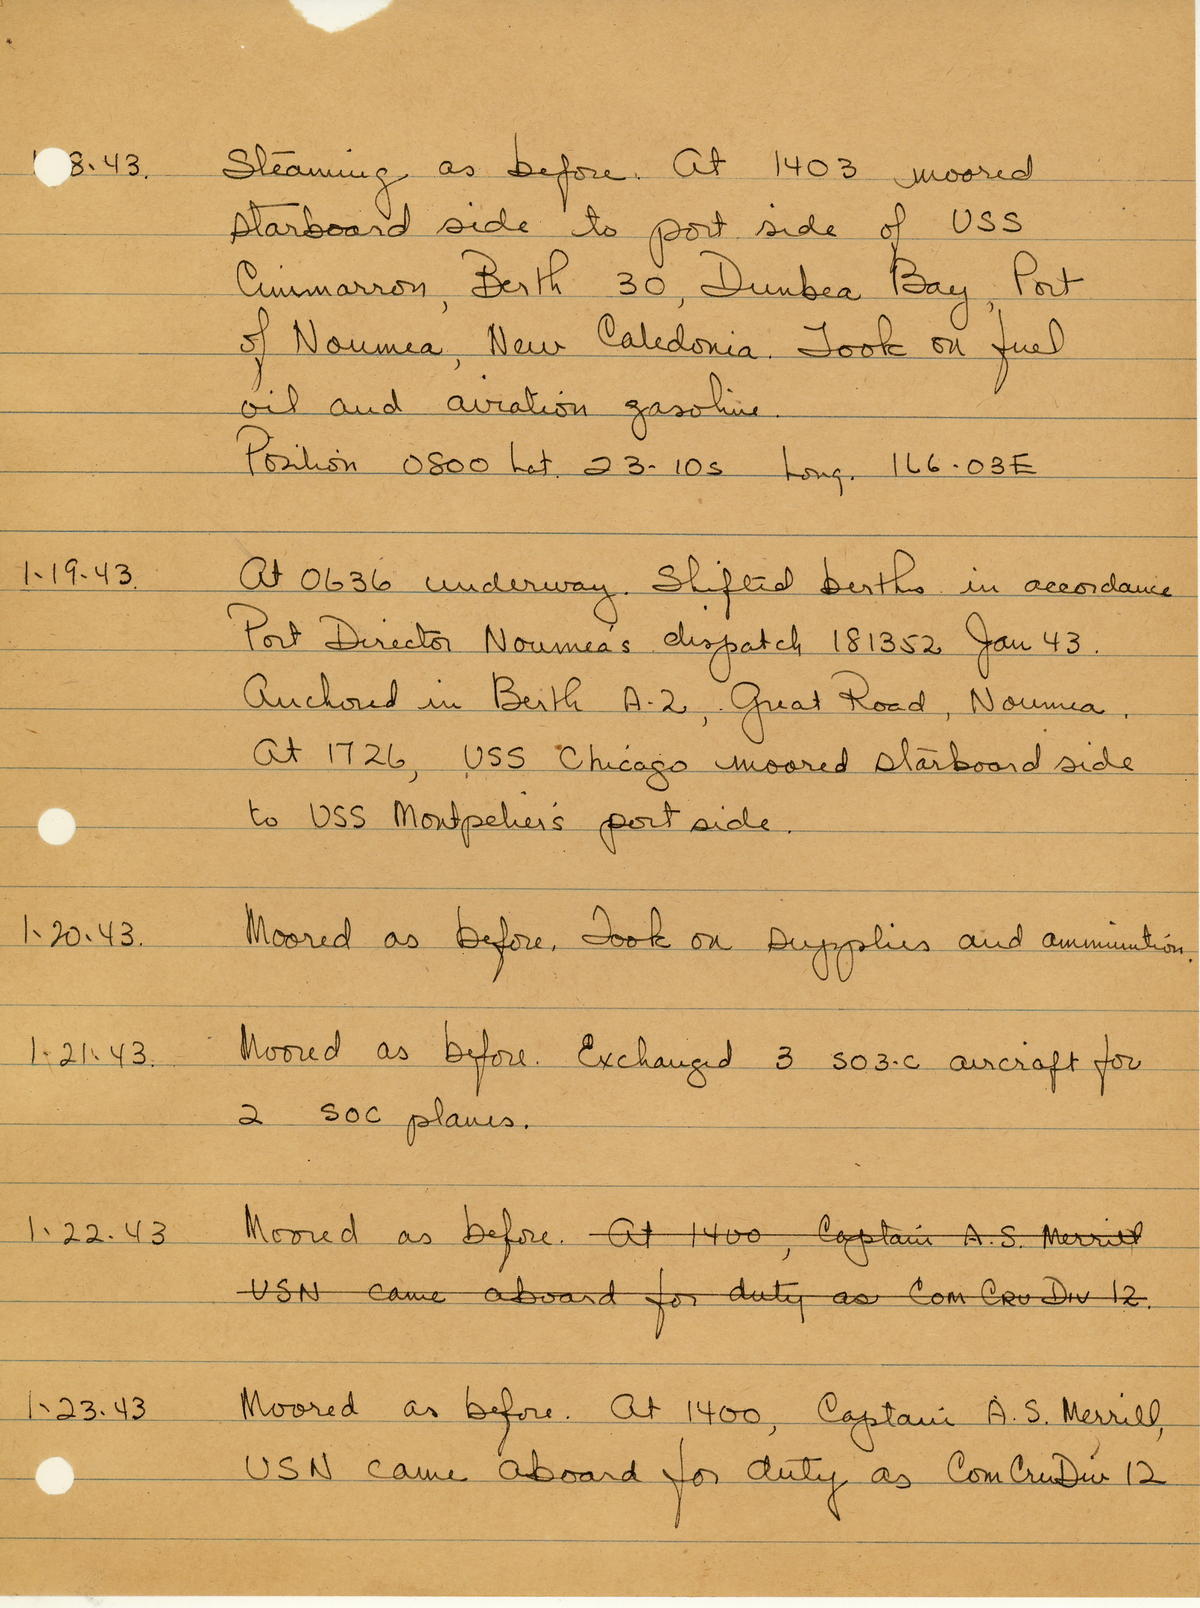 1-18.43. Steaming as before. At 1403 moored
starboard side to port side of USS
Cimmarron, Berth 30, Dumbea Bay, Port
of Noumea, New Caledonia. Took on fuel
oil and aviation gasoline.
Position 0800 Lat. 23-10S Long. 166-03E
1-19-43. At 0636 underway. Shifted berths in accordance
Port Director Noumea's dispatch 181352 Jan 43.
Anchored in Berth A-2, Great Road, Noumea.
At 1726, USS Chicago moored starboard side
to USS Montpelier's port side.
1-20-43. Moored as before. Took on supplies and ammunition.
1-21-43. Moored as before. Exchanged 3 SO3-C aircraft for
2 SOC planes.
1-22-43 Moored as before. At 1400, Captain A.S. Merrill
USN came aboard for duty as Com Cru Div 12.
1-23-43 Moored as before. At 1400, Captain A.S. Merrill,
USN came aboard for duty as ComCruDiv 12